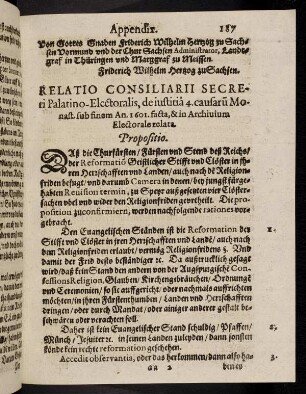 Appendix. 187
Von Gottes Gnaden Friderich Wilhelm Hertzog zu Sach-
sen Vormund und der Chur Sachsen Administrator, Landt-
graf in Thüringen und Marggraf zu Meissen.
Friderich Wilhelm Hertzog zu Sachsen.
RELATIO CONSILIARII SECRE-
ti Palatino-Electoralis, de iustitiâ 4. causarũ Mo-
nast. sub finem An. 1601. facta, & in Archivium
Electorale relata.
Propositio.
Daß die Churfürsten / Fürsten und Stend deß Reichs /
der Reformatiō Geistlicher Stifft und Clöster in jh-
ren Herrschafften und Landen / auch nach dē Religions
frieden befugt / und darumb Camera in denen / bey jungst fürge-
habten Revision termin / zu Speyr auß gesetzten vier Clöster-
sachen wol und wider den Religionfrieden geurtheilt. Die pro-
position zu confirmiern, werden nachfolgende rationes vor-
gebracht.
Den Euangelischen Ständen ist die Reformation der 1.
Stifft und Clöster in jren Herrschafften und Landē / auch nach
dem Religionfrieden erlaubt / vermög Religionfriedens §. Und
damit der Frid desto beständiger ꝛc. Da außtrucklich gesagt
wird / daß kein Stand den andern von der Augspurgische Con-
fessions Religion, Glauben / Kirchengebräuchen / Ordnung
und Ceremonien / so sie auffgericht / oder nachmals auffrichten
möchten / in jhren Fürstenthumben / Landen und Herrschafften
dringen / oder durch Mandat / oder einiger anderer gestalt be-
schwären oder verachten soll.
Daher ist kein Euangelischer Stand schuldig / Pfaffen / 2.
Münch / Jesuiter ꝛc. in seinen Landen zu leyden / dann sonsten
könde kein rechte reformation geschehen.
Accedit observantia, oder das herkommen / dann also ha- 3.
aa 2 ben ey